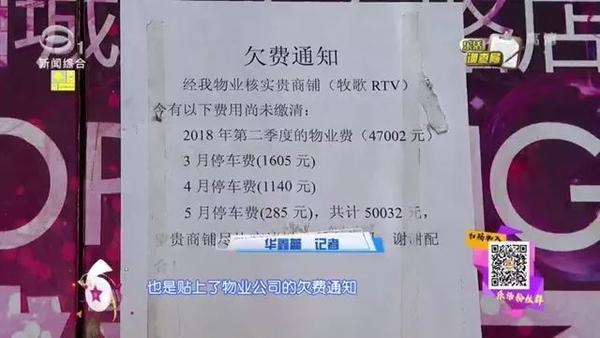 新闻综合
乐活
调查局
高清
欠费通知
经我物业核实贵商铺（牧歌 RTV）
含有以下费用尚未缴清：
2018 年第二季度的物业费（47002 元）
3 月停车费(1605 元)
4 月停车费(1140 元)
5 月停车费(285 元)，共计 50032 元，
贵商铺尽
谢谢配
合！
华鑫磊 记者
扫码加入
乐活粉丝群
6
也是贴上了物业公司的欠费通知